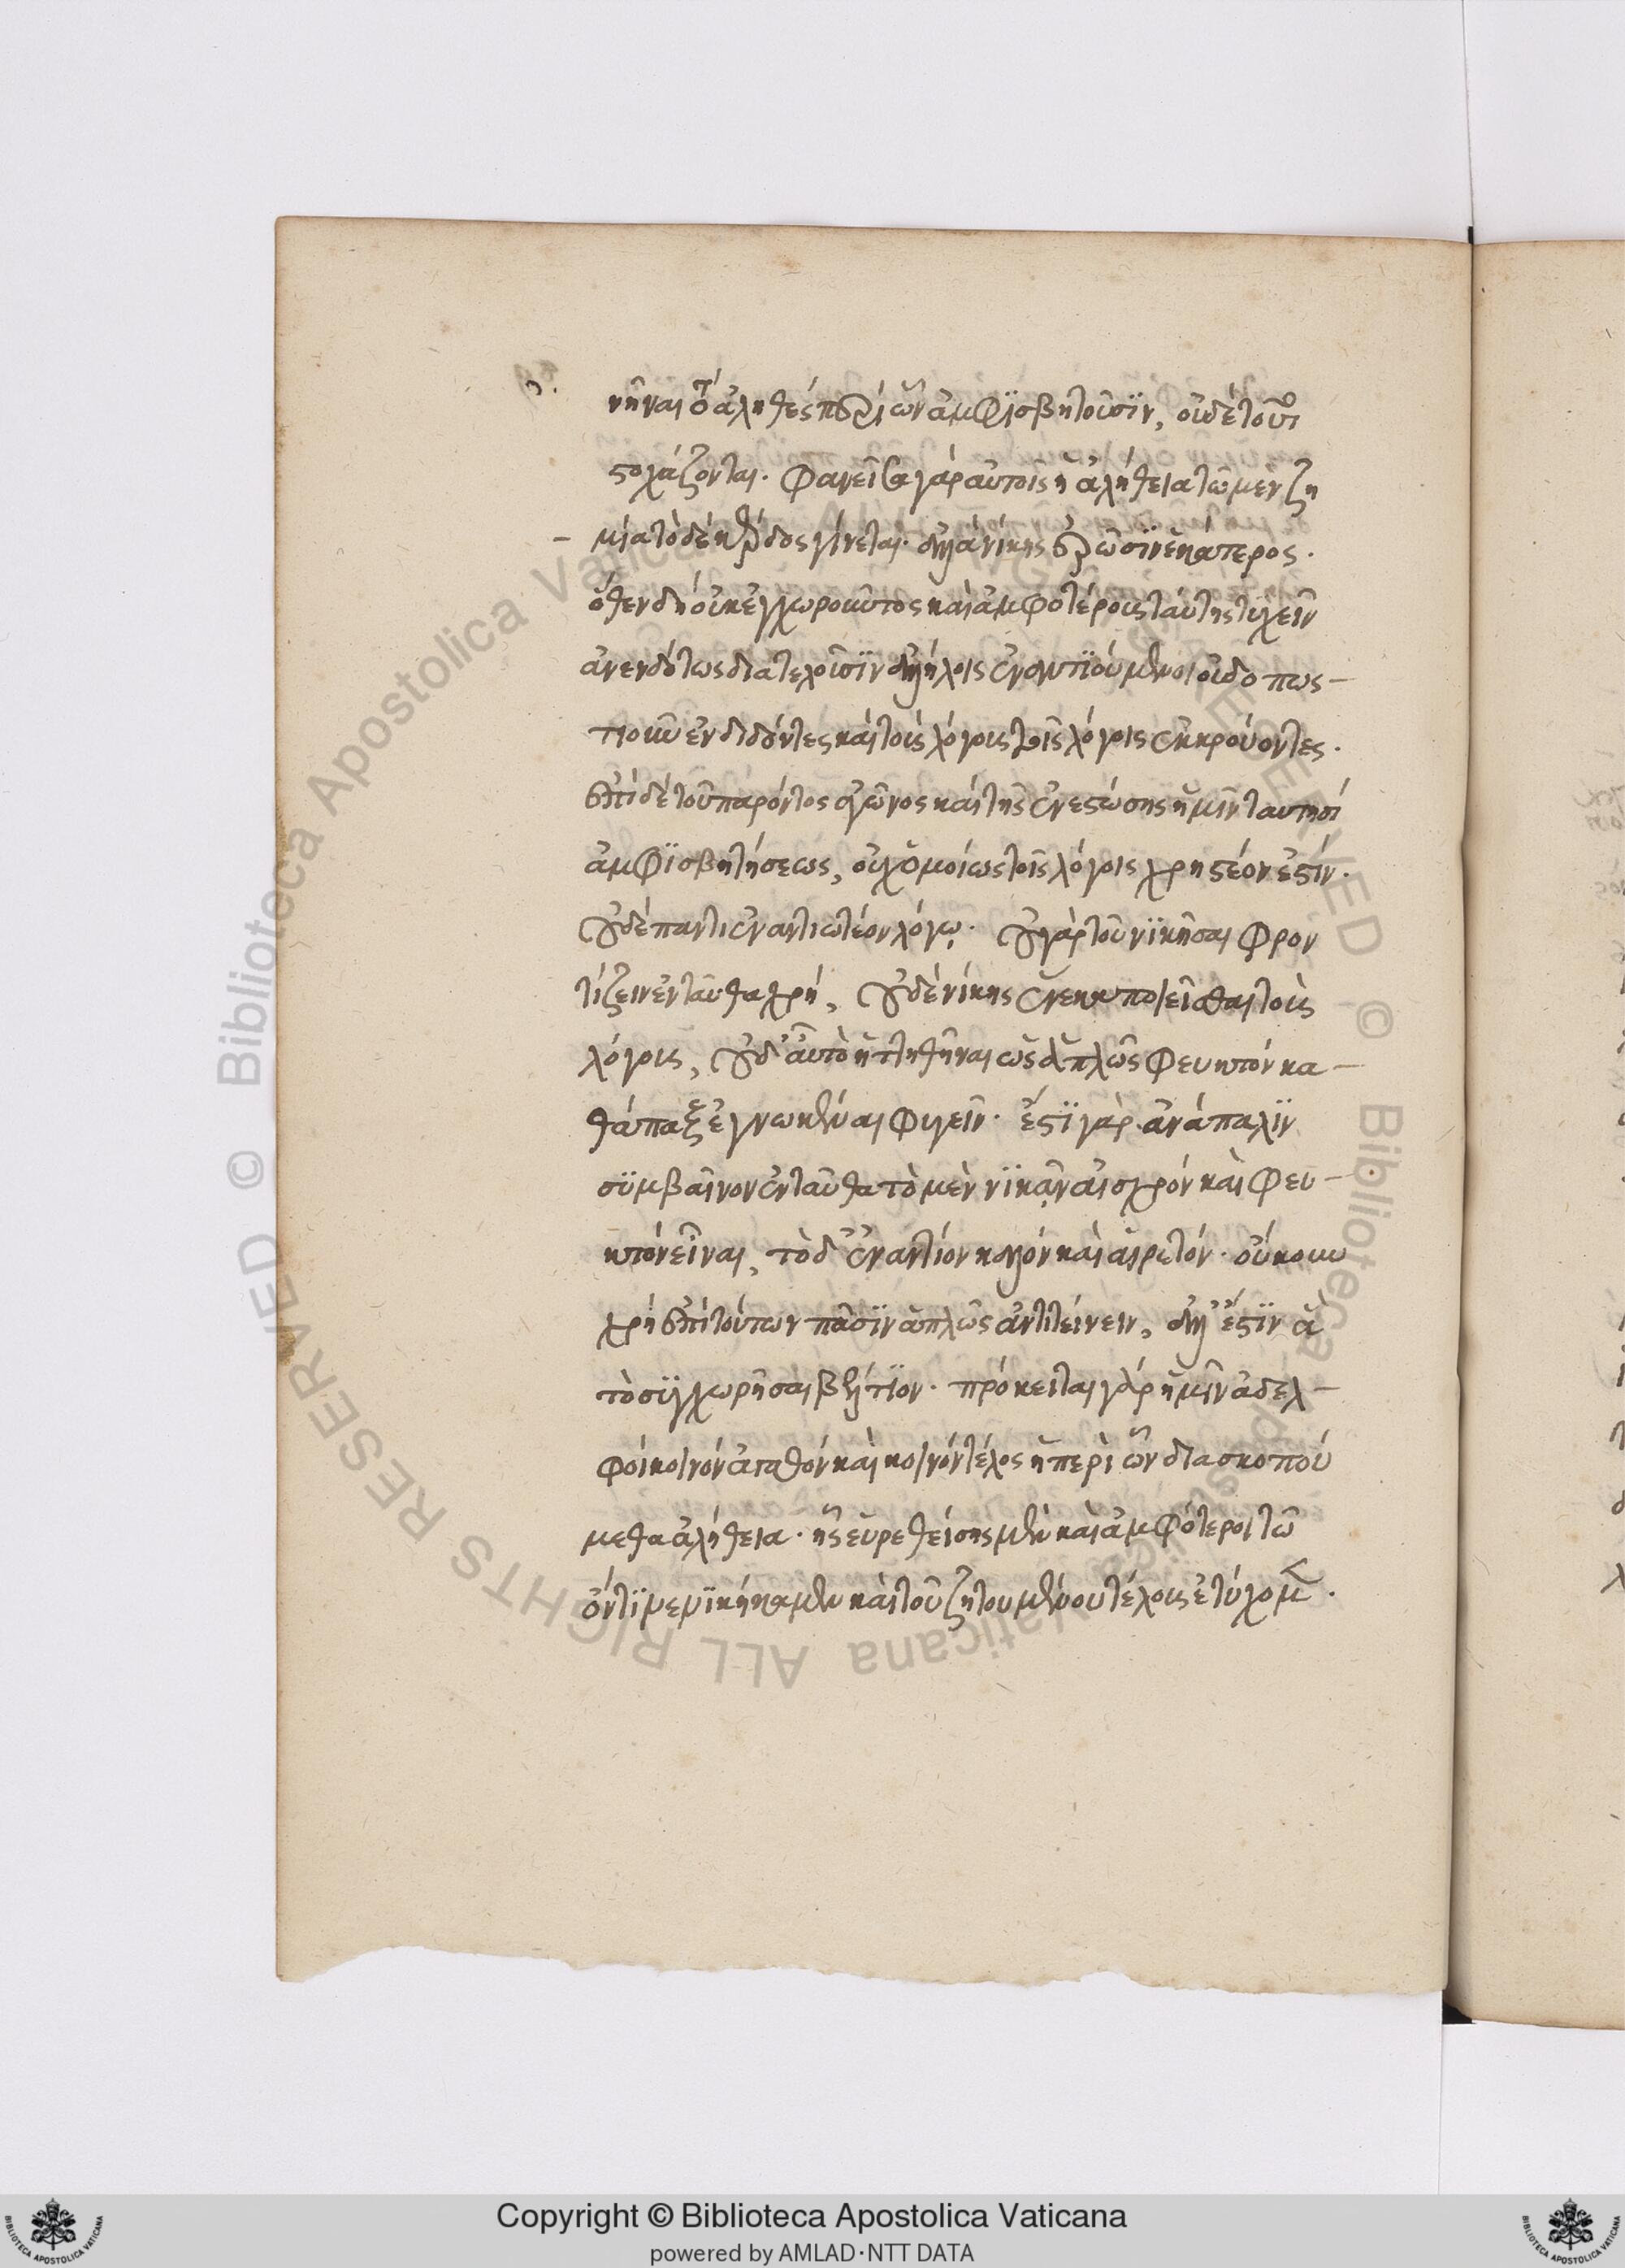 νῆναι τὸ ἀληθές περὶ ὧν ἀμφϊσβητοῦσϊν, οὐδὲ τούτου
στοχάζονται. φανεῖσα γὰρ αὐτοῖς ἡ ἀλήθεια τῶ μὲν ζη
μία τὸ δὲ κέρδος γίνεται. ἀλλὰ νίκης ἐρῶσϊν ἑκάτερος.
ὅθεν δὴ οὐκ ἐγχωροῦντος καὶ ἀμφοτέρους ταύτης τυχεῖν
ἀνενδότως διατελοῦσϊν ἀλλήλοις ἐναντϊούμενοι οὐδοπως-
τιοῦν ἐνδιδόντες καὶ τοὺς λόγους τοῖς λόγοις ἐκκρούοντες.
ἐπὶ δὲ τοῦ παρόντος ἀγῶνος καὶ τῆς ἐνεστώσης ἡμῖν ταυτησί
ἀμφϊσβητήσεως, οὐχ ὁμοίως τοῖς λόγοις χρηστέον ἐστίν.
οὐδὲ παντὶ ἐναντιωτέον λόγῳ. οὐ γὰρ τοῦ νϊκῆσαι φρον
τίζειν ἐνταῦθα χρή, οὐδὲ νίκης ἕνεκα ποιεῖσθαι τοὺς
λόγους, οὐδ' αὐτὸ ἡττηθῆναι ὡς ἁπλῶς φευκτόν κα-
θάπαξ ἐγνωκέναι φυγεῖν. ἔστϊ γὰρ ἀνάπαλϊν
σϋμβαῖνον ἐνταῦθα τὸ μὲν νϊκᾶν αἰσχρόν καὶ φευ-
κτόν εἶναι, τὸ δ' ἐναντίον καλόν καὶ αἱρετόν. οὔκουν
χρή ἐπὶ τούτων πᾶσϊν ἁπλῶς ἀντιτείνειν, ἀλλ' ἔστϊν ἃ
τὸ σϋγχωρῆσαι βέλτϊον. πρόκειται γὰρ ἡμῖν ἀδελ-
φοί κοινόν ἀγαθόν καὶ κοινόν τέλος ἡ περὶ ὧν διασκοπού
μεθα ἀλήθεια. ἧς εὑρεθείσης μὲν καὶ ἀμφότεροι τῶ
ὄντϊ νενϊκήκαμεν καὶ τοῦ ζητουμένου τέλους ἐτύχομεν.
Copyright © Biblioteca Apostolica Vaticana
powered by AMLAD·NTT DATA